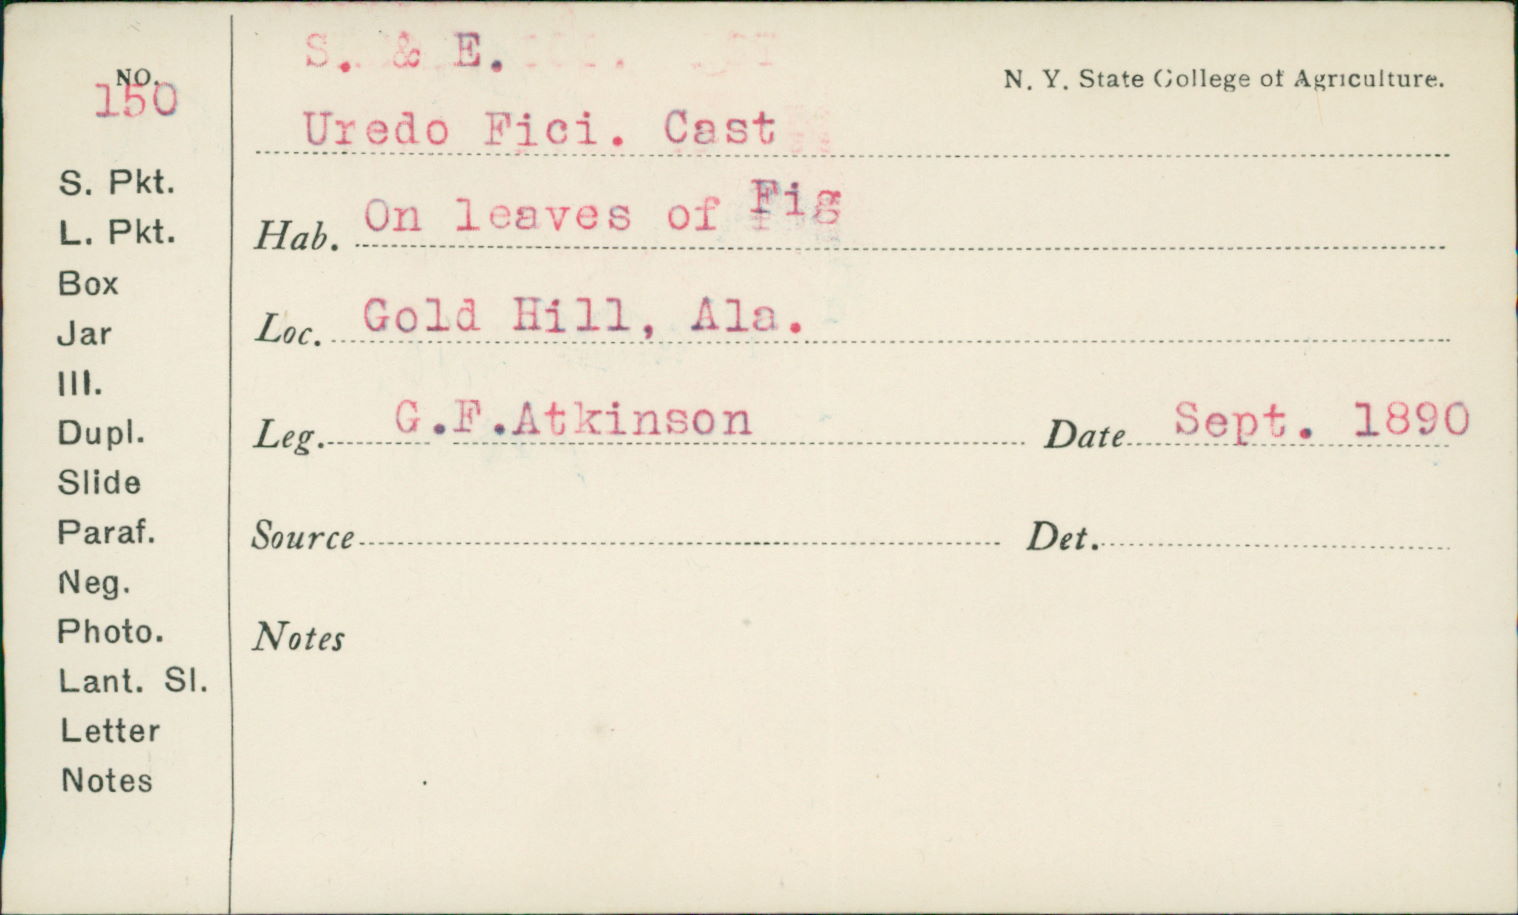 S. & E.
NO.
150
N. Y. State College of Agriculture.
Uredo Fici. Cast
S. Pkt.
L. Pkt.
Box
Jar
Ill.
Dupl.
Slide
Paraf.
Neg.
Photo.
Lant. Sl.
Letter
Notes
Hab. On leaves of Fig
Loc. Gold Hill, Ala.
Leg. G.F.Atkinson Date Sept. 1890
Source Det.
Notes